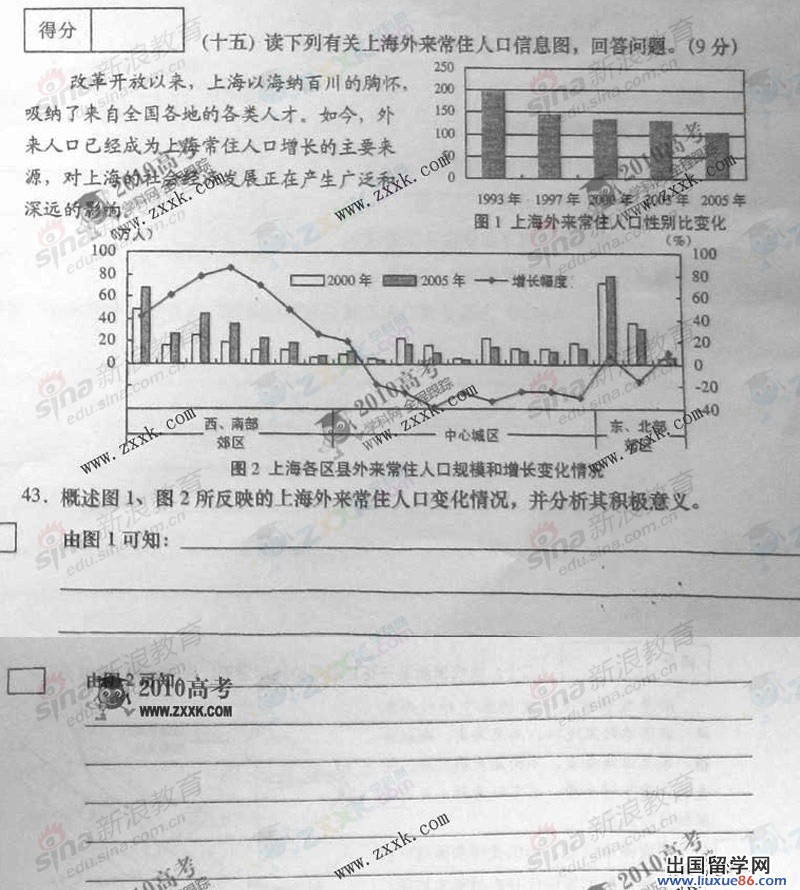 得分
(十五)读下列有关上海外来常住人口信息图,回答问题。(9分)
改革开放以来,上海以海纳百川的胸怀,
吸纳了来自全国各地的各类人才。如今,外
来人口已经成为上海常住人口增长的主要来
源,对上海的社会经济发展正在产生广泛和
深远的影响。
250
200
150
100
50
0
1993年 1997年 2000年 2003年 2005年
图1 上海外来常住人口性别比变化
(万人)
(%)
100
80
60
40
20
0
2000年 2005年 增长幅度
100
80
60
40
20
0
-20
-40
西、南部
郊区
中心城区
东、北部
郊区
图2 上海各区县外来常住人口规模和增长变化情况
43. 概述图1、图2所反映的上海外来常住人口变化情况,并分析其积极意义。
由图1可知:
由图2可知
2010高考
WWW.ZXXK.COM
www.zxxk.com
sina新浪教育
edu.sina.com.cn
2010高考
学科网 全程跟踪
出国留学网
www.liuxue86.com